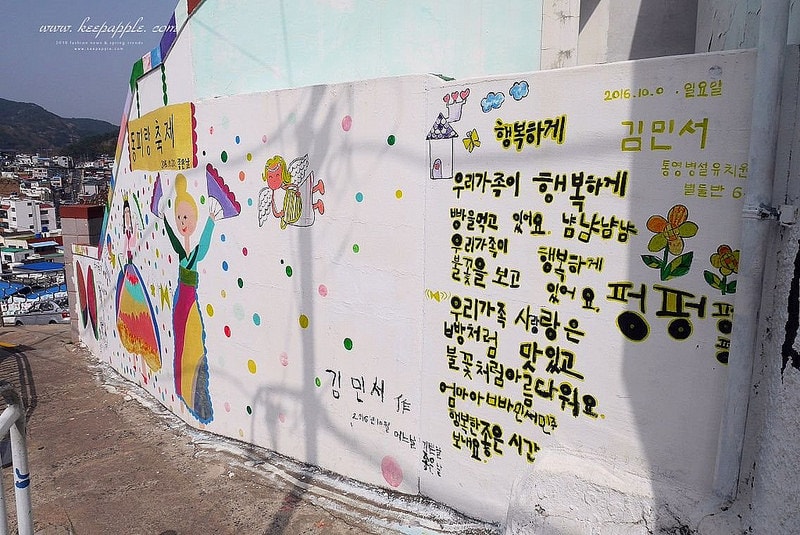 www. keepapple. com
2018 fashion news & spring trends
www.keepapple.com
동피랑 축제
2016.10.0 . 일요일
행복하게
김민서
통영병설유치원
별돌반 6
우리가족이 행복하게
빵을먹고 있어요. 냠냠냠냠
우리가족이 행복하게
불꽃을 보고 있어요.
펑펑펑
펑
우리가족 사랑은
빵처럼 맛있고
불꽃처럼아름다워요.
엄마아빠민서민주
행복한좋은 시간
보내요.
김 민서 作
2016년10월 어느날
좋은날